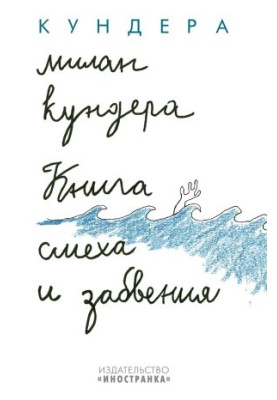 КУНДЕРА
милан
кундера
Книга
смеха
и забвения
ИЗДАТЕЛЬСТВО
«ИНОСТРАНКА»